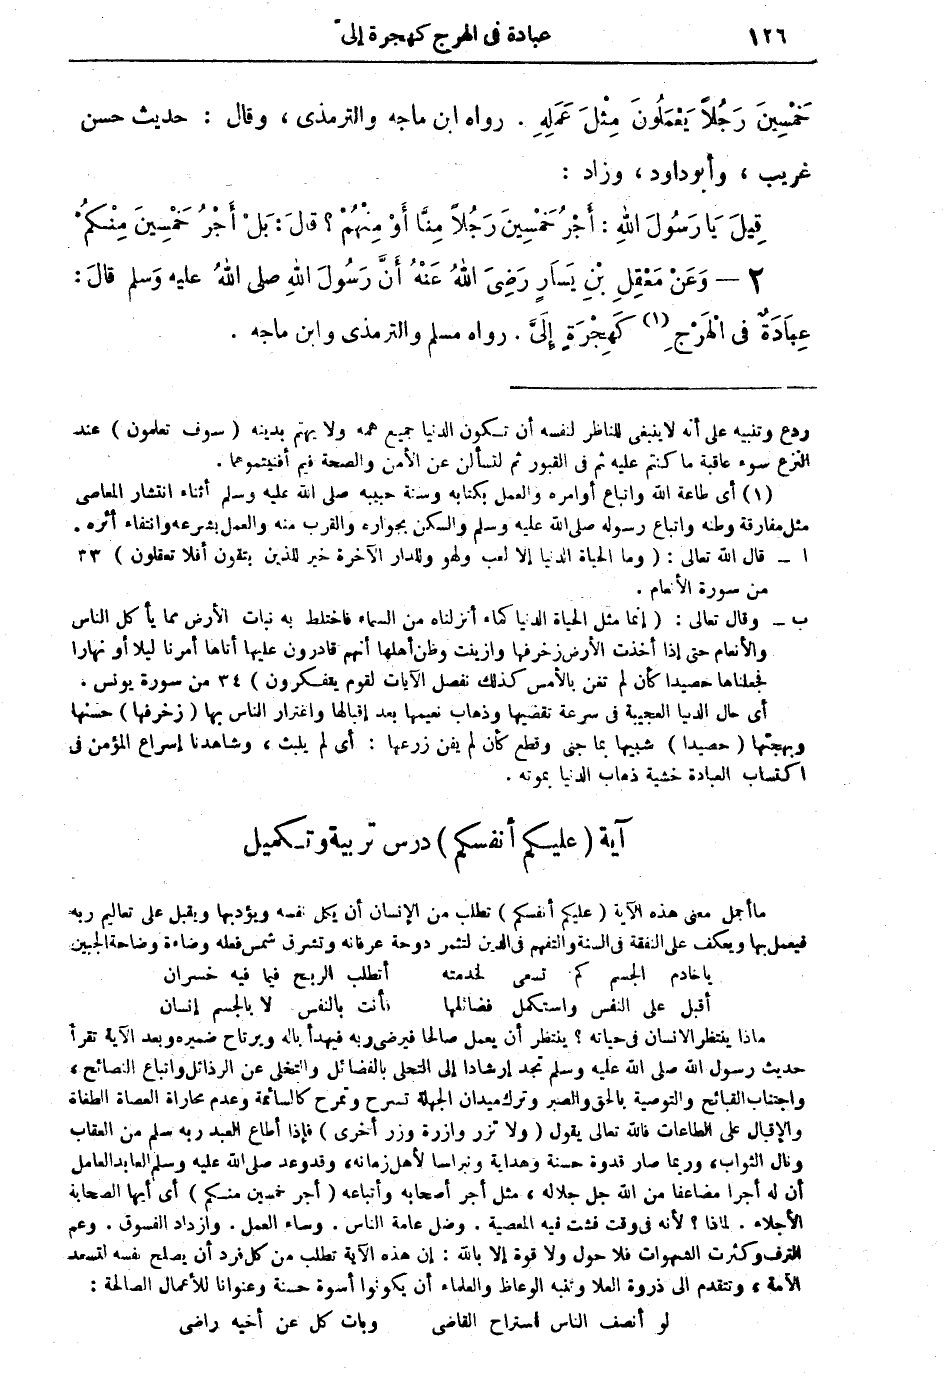 ١٢٦ عبادة فى الهرج كهجرة إلىّ
خَمْسِينَ رَجُلاً يَعْمَلُونَ مِثْلَ عَمَلِهِ . رواه ابن ماجه والترمذى ، وقال : حديث حسن
غريب ، وأبوداود ، وزاد :
قِيلَ يَا رَسُولَ اللهِ : أَجْرُ خَمْسِينَ رَجُلاً مِنَّا أَوْ مِنْهُمْ ؟ قالَ : بَلْ أَجْرُ خَمْسِينَ مِنْكُمْ
٢ — وَعَنْ مَعْقِلِ بْنِ يَسَارٍ رَضِىَ اللهُ عَنْهُ أَنَّ رَسُولَ اللهِ صلى اللهُ عليه وَسلم قالَ :
عِبَادَةٌ فى الْهَرْجِ (١) كَهِجْرَةٍ إِلَىَّ . رواه مسلم والترمذى وابن ماجه .
ردع وتنبيه على أنه لاينبغى للناظر لنفسه أن تكون الدنيا جميع همه ولا يهتم بدينه ( سوف تعلمون ) عند
النزع سوء عاقبة ما كنتم عليه ثم فى القبور ثم لتسألن عن الأمن والصحة فيم أفنيتموهما .
(١) أى طاعة الله واتباع أوامره والعمل بكتابه وسنة حبيبه صلى الله عليه وسلم أثناء انتشار المعاصى
مثل مفارقة وطنه واتباع رسوله صلى الله عليه وسلم والسكن بجواره والقرب منه والعمل بشرعه وانتفاء أثره .
ا — قال الله تعالى : ( وما الحياة الدنيا إلا لعب ولهو وللدار الآخرة خير للذين يتقون أفلا تعقلون ) ٣٣
من سورة الأنعام .
ب — وقال تعالى : ( إنما مثل الحياة الدنيا كماء أنزلناه من السماء فاختلط به نبات الأرض مما يأكل الناس
والأنعام حتى إذا أخذت الأرض زخرفها وازينت وظن أهلها أنهم قادرون عليها أتاها أمرنا ليلا أو نهارا
فجعلناها حصيدا كأن لم تغن بالأمس كذلك نفصل الآيات لقوم يتفكرون ) ٣٤ من سورة يونس .
أى حال الدنيا العجيبة فى سرعة تقضيها وذهاب نعيمها بعد إقبالها واغترار الناس بها ( زخرفها ) حسنها
وبهجتها ( حصيدا ) شبيها بما جنى وقطع كأن لم يغن زرعها : أى لم يلبث ، وشاهدنا إسراع المؤمن فى
اكتساب العبادة خشية ذهاب الدنيا بموته .
آية ( عليكم أنفسكم ) درس تربية وتكميل
ماأجمل معنى هذه الآية ( عليكم أنفسكم ) تطلب من الإنسان أن يكمل نفسه ويؤدبها ويقبل على تعاليم ربه
فيعمل بها ويعكف على التفقة فى السنة والتفهم فى الدين لتثمر دوحة عرفانه وتشرق شمس فعله وضاءة وضاحة الجبين
ياخادم الجسم كم تسعى لخدمته أتطلب الربح فيما فيه خسران
أقبل على النفس واستكمل فضائلها فأنت بالنفس لا بالجسم إنسان
ماذا ينتظر الانسان فى حياته ؟ ينتظر أن يعمل صالحا فيرضى ربه فيهدأ باله ويرتاح ضميره وبعد الآية تقرأ
حديث رسول الله صلى الله عليه وسلم تجد إرشادا إلى التحلى بالفضائل والتخلى عن الرذائل واتباع النصائح ،
واجتناب القبائح والتوصية بالحق والصبر وترك ميدان الجهلة تسرح وتمرح كالسائمة وعدم مجاراة العصاة الطغاة
والإقبال على الطاعات فالله تعالى يقول ( ولا تزر وازرة وزر أخرى ) فإذا أطاع العبد ربه سلم من العقاب
ونال الثواب ، وربما صار قدوة حسنة وهداية ونبراسا لأهل زمانه ، وقد وعد صلى الله عليه وسلم العابد العامل
أن له أجرا مضاعفا من الله جل جلاله ، مثل أجر أصحابه وأتباعه ( أجر خمسين منكم ) أى أيها الصحابة
الأجلاء . لماذا ؟ لأنه فى وقت فشت فيه المعصية . وضل عامة الناس . وساء العمل . وازداد الفسوق . وعم
الترف وكثرت الشهوات فلا حول ولا قوة إلا بالله : إن هذه الآية تطلب من كل فرد أن يصلح نفسه لتسعد
الأمة ، وتتقدم الى ذروة العلا وتنبه الوعاظ والعلماء أن يكونوا أسوة حسنة وعنوانا للأعمال الصالحة :
لو أنصف الناس استراح القاضى وبات كل عن أخيه راضى